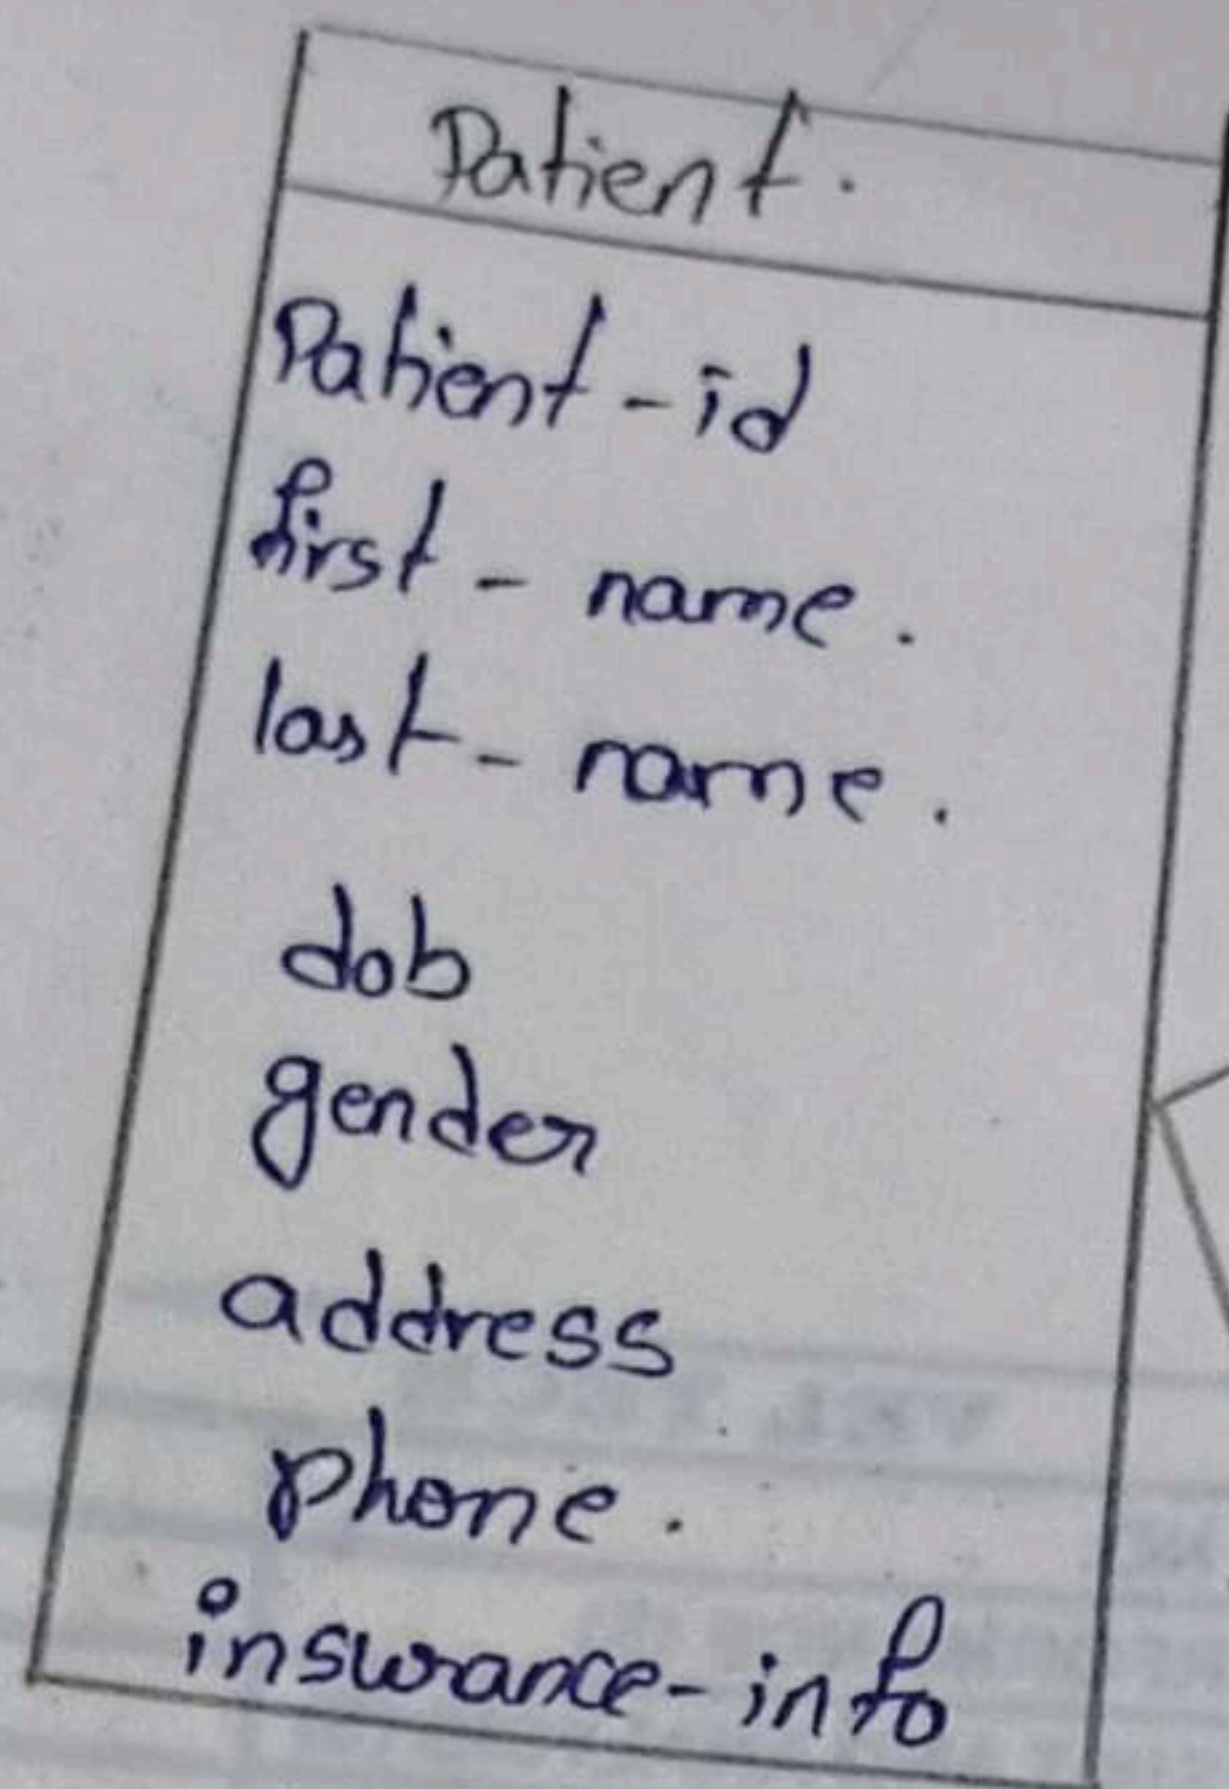 Patient.
Patient-id
first - name.
last - name.
dob
gender
address
phone.
insurance-info